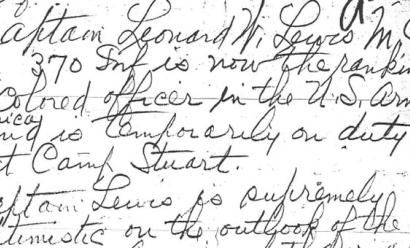 aptain Leonard W. Lewis M.C
370 Inf is now the rankin
Colored officer in the U.S. Arm
nd is temporarily on duty
t Camp Stuart.
aptain Lewis is supremely
timistic on the outlook of the